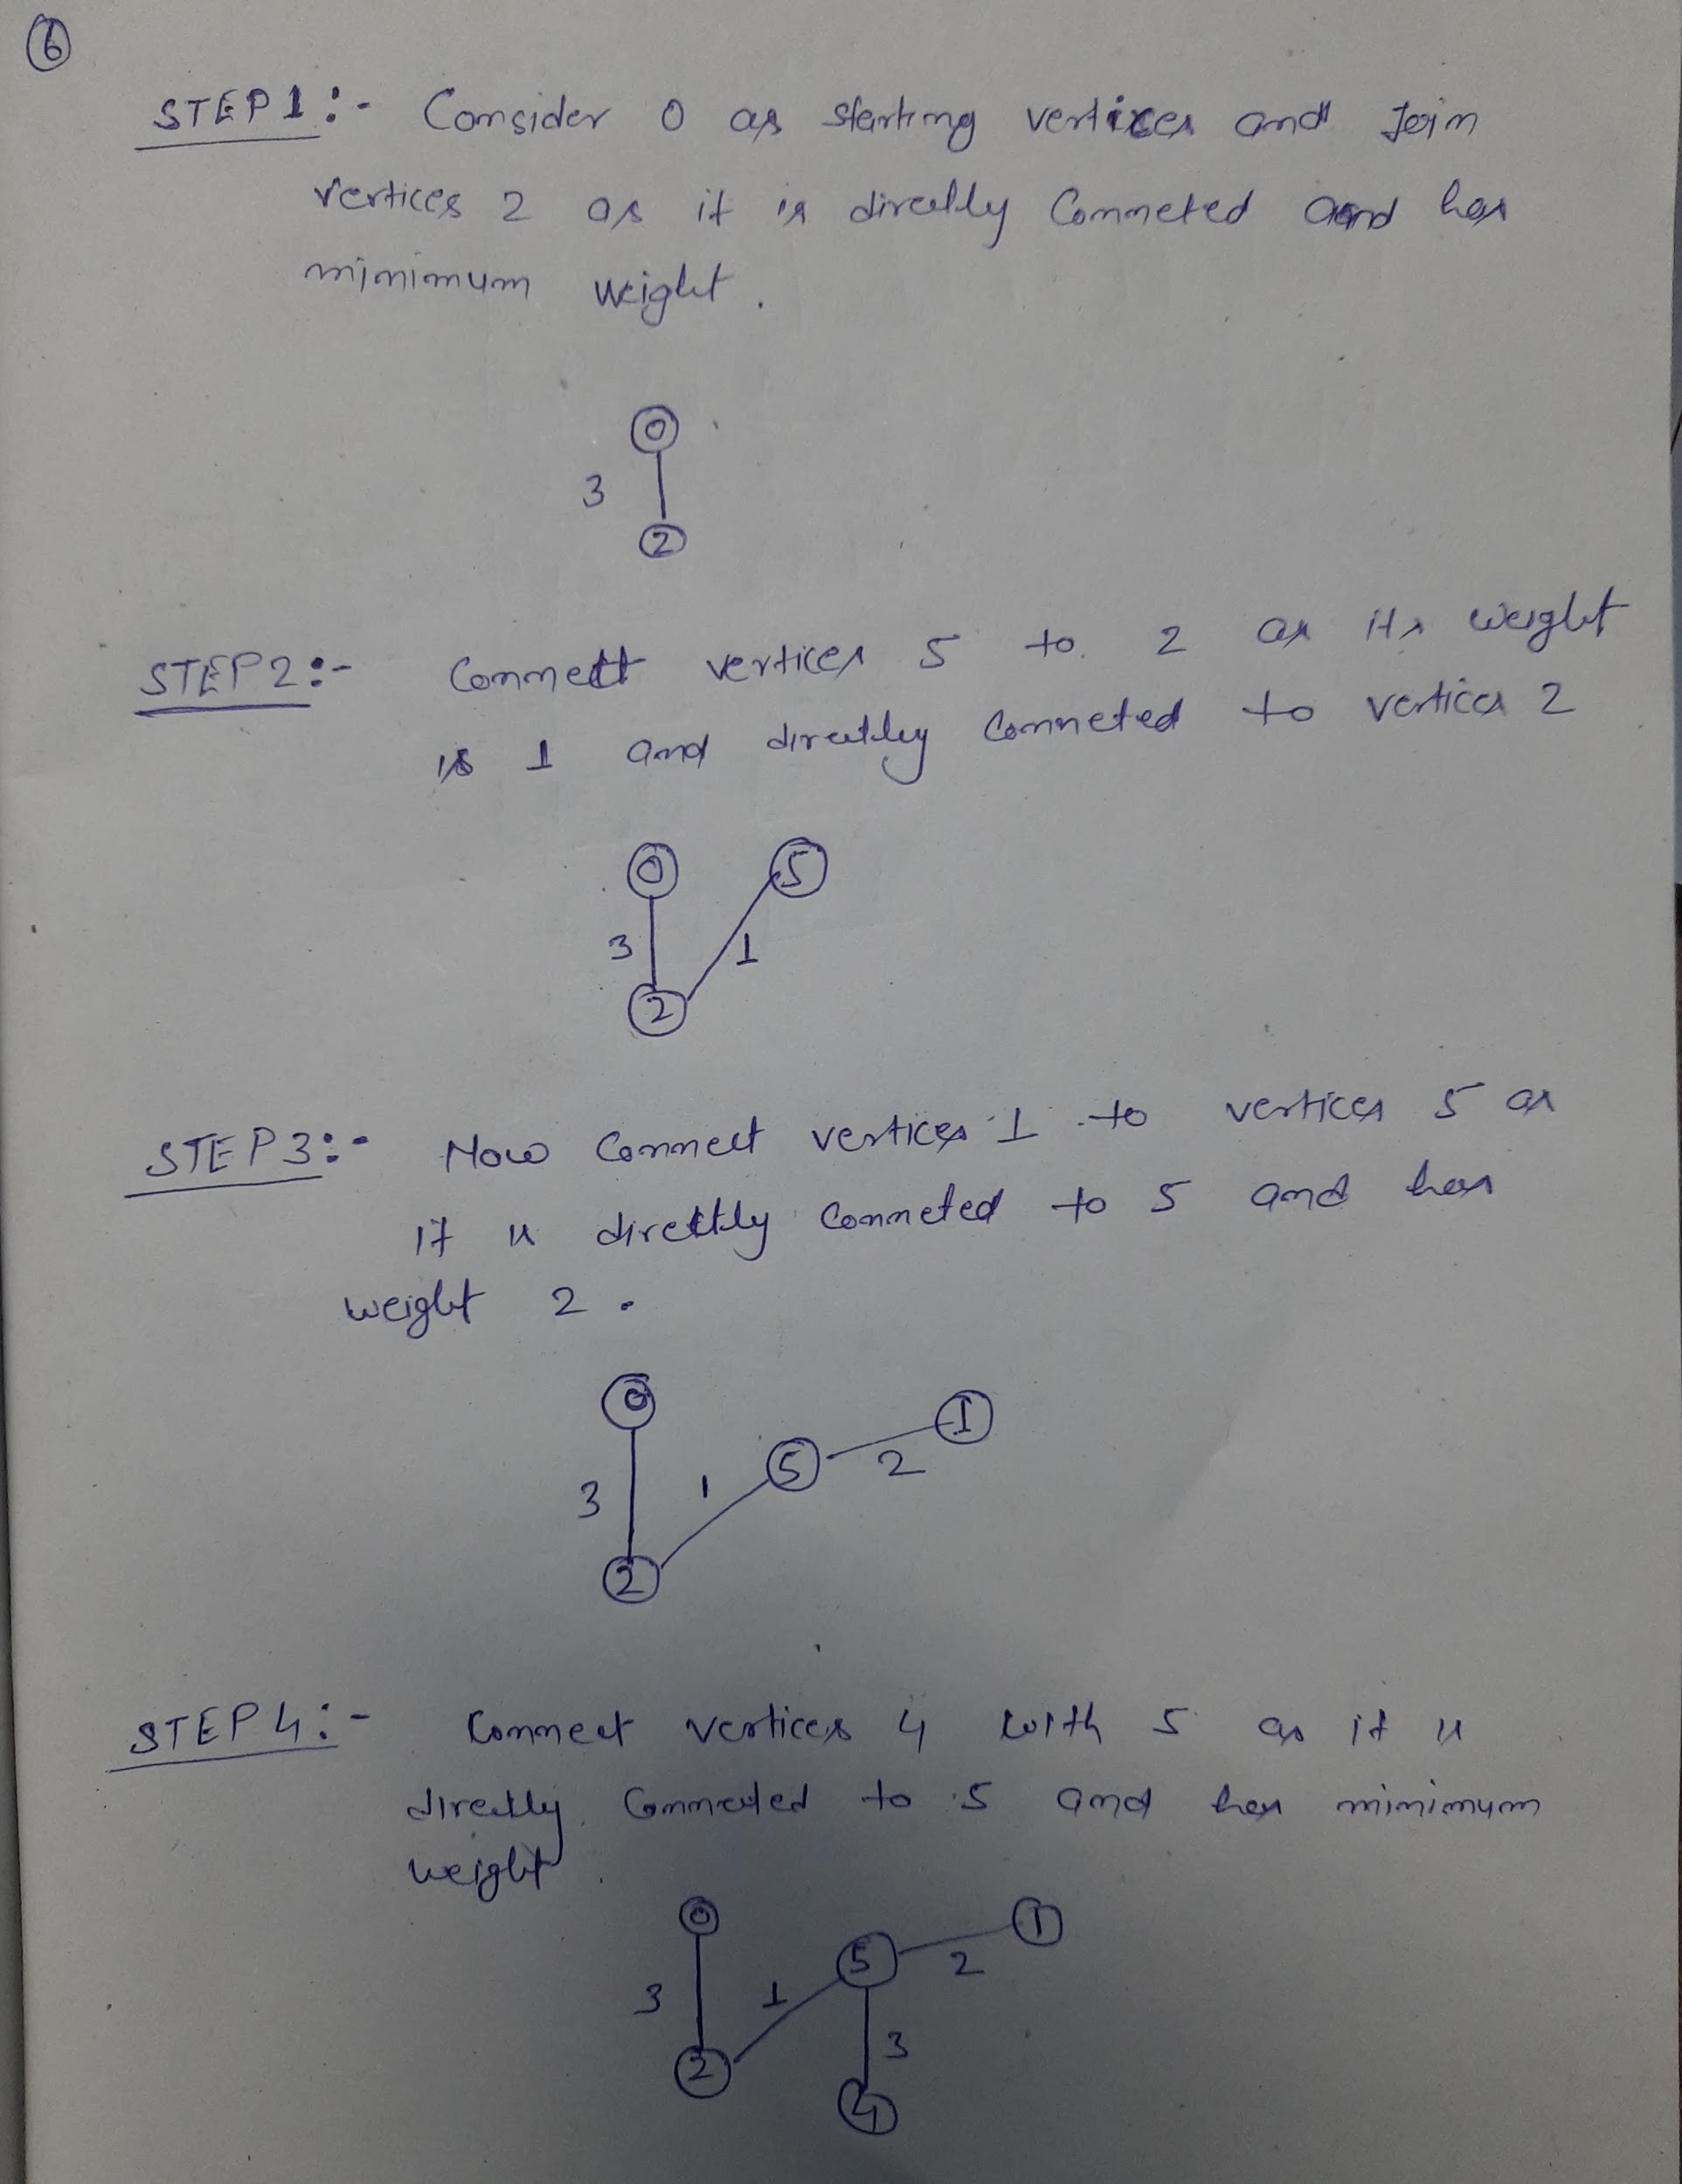 6
STEP 1:- Consider 0 as starting vertices and Join
vertices 2 as it is directly Conneted and has
minimum weight.
0
3
2
STEP 2:- Connect vertices 5 to 2 as its weight
is 1 and directly Conneted to vertices 2
0 5
3 1
2
STEP 3:- Now Connect vertices 1 to vertices 5 as
it is directly Conneted to 5 and has
weight 2.
0 1
5 2
3 1
2
STEP 4:- Connect vertices 4 with 5 as it is
directly Connected to 5 and has minimum
weight
0 1
5 2
3 1
3
2
4